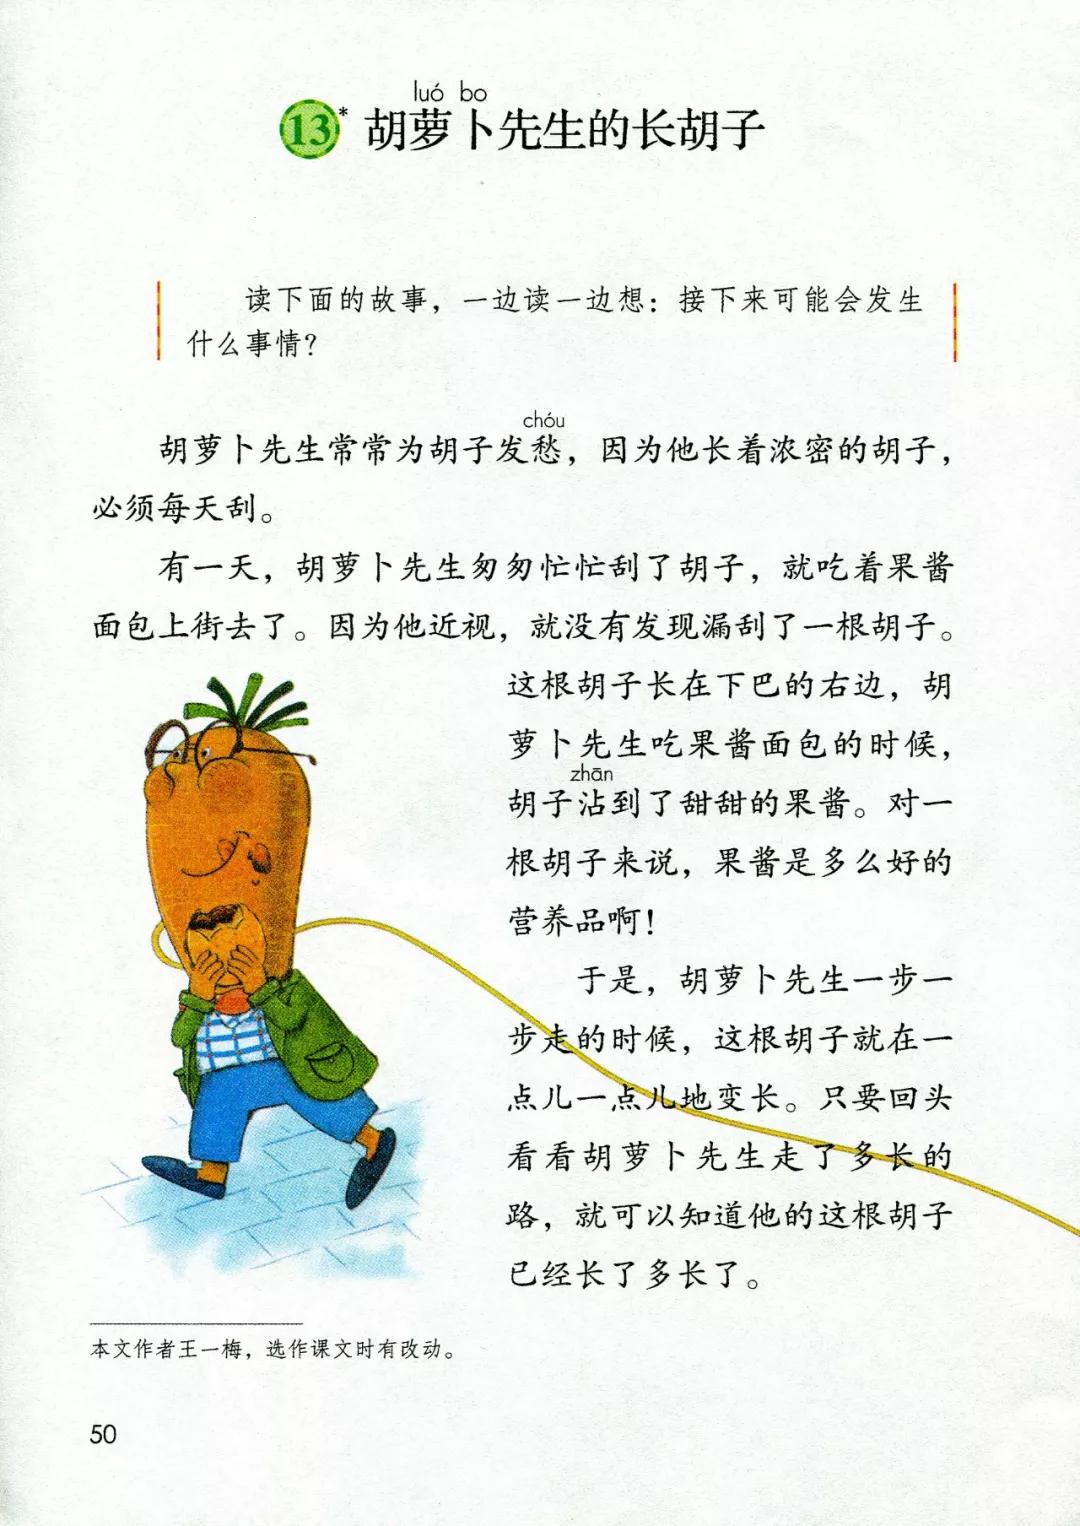 luó bo
13* 胡萝卜先生的长胡子
读下面的故事，一边读一边想：接下来可能会发生
什么事情？
chóu
胡萝卜先生常常为胡子发愁，因为他长着浓密的胡子，
必须每天刮。
有一天，胡萝卜先生匆匆忙忙刮了胡子，就吃着果酱
面包上街去了。因为他近视，就没有发现漏刮了一根胡子。
这根胡子长在下巴的右边，胡
萝卜先生吃果酱面包的时候，
zhān
胡子沾到了甜甜的果酱。对一
根胡子来说，果酱是多么好的
营养品啊！
于是，胡萝卜先生一步一
步走的时候，这根胡子就在一
点儿一点儿地变长。只要回头
看看胡萝卜先生走了多长的
路，就可以知道他的这根胡子
已经长了多长了。
本文作者王一梅，选作课文时有改动。
50